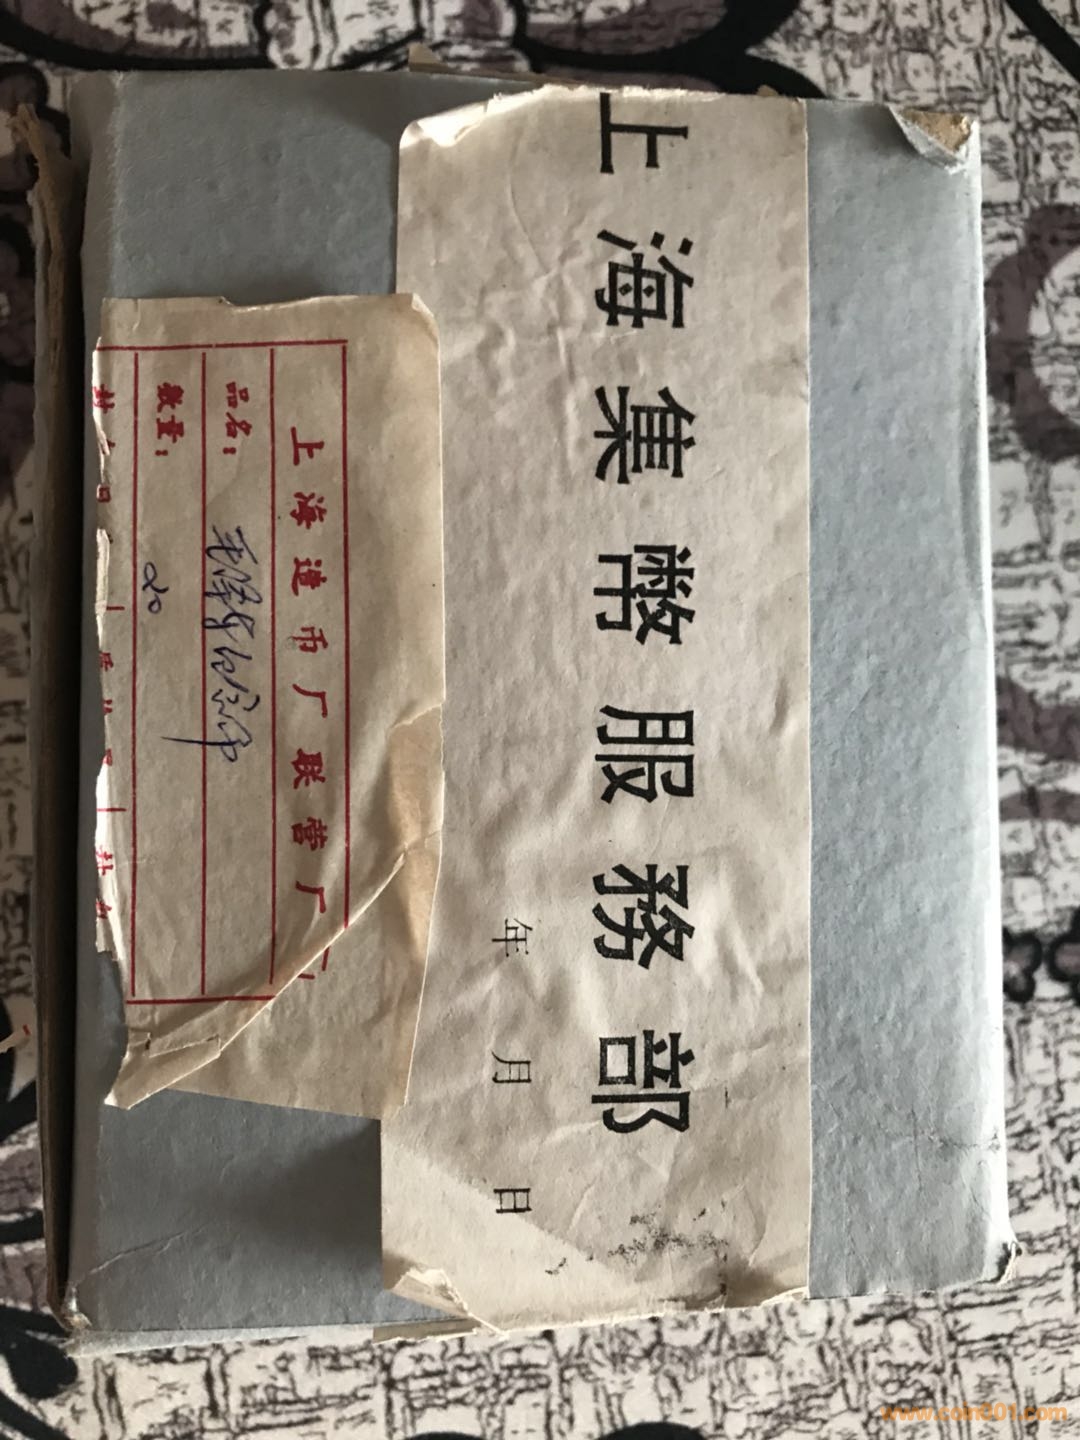 上海集幣服務部
年 月 日
上海造币厂联营厂
品名：毛泽东纪念币
数量：20
www.coin001.com